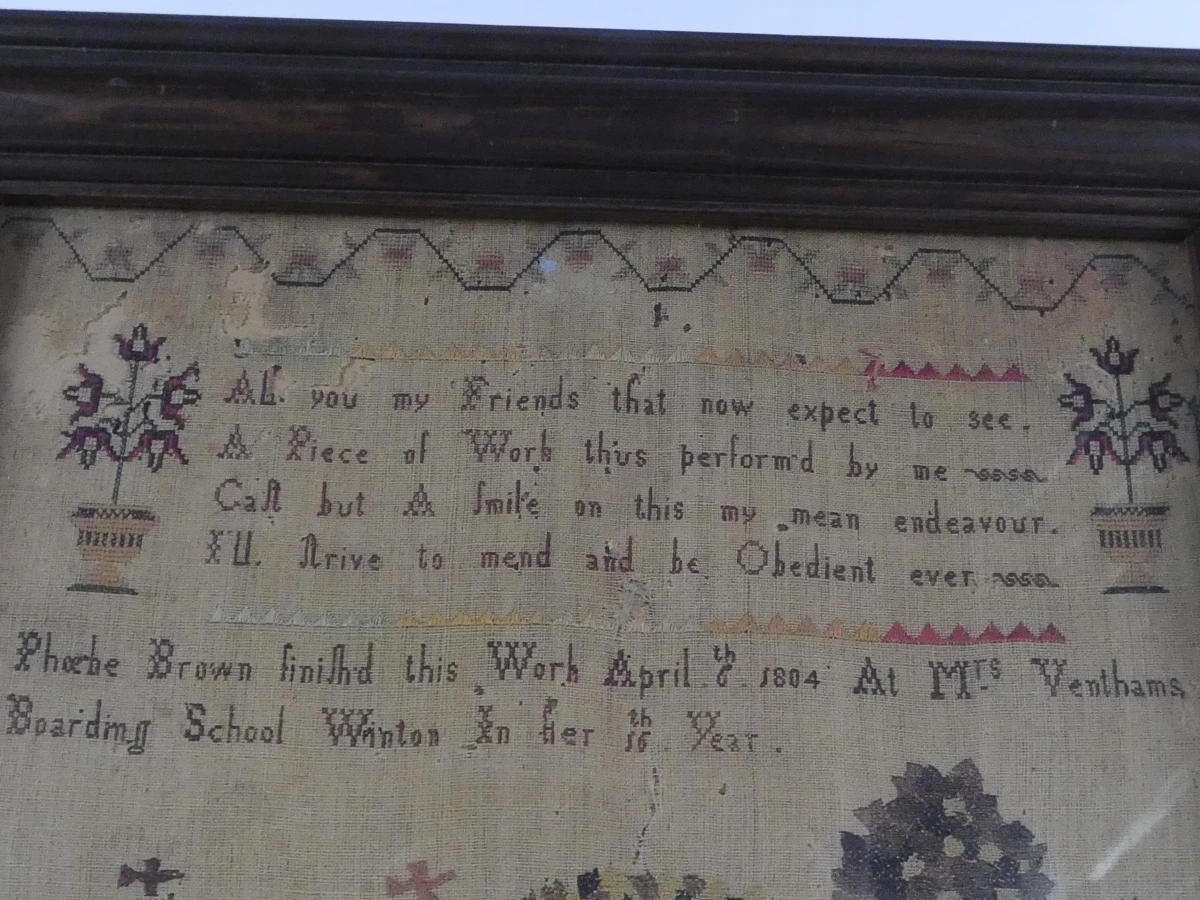 All. you my Friends that now expect to see.
A Piece of Work thus perform'd by me
Caſt but A ſmile on this my mean endeavour.
I'll. ſtrive to mend and be Obedient ever
Phœbe Brown finiſh'd this Work April 6th 1804 At Mrs Venthams
Boarding School Winton In her 16th Year.